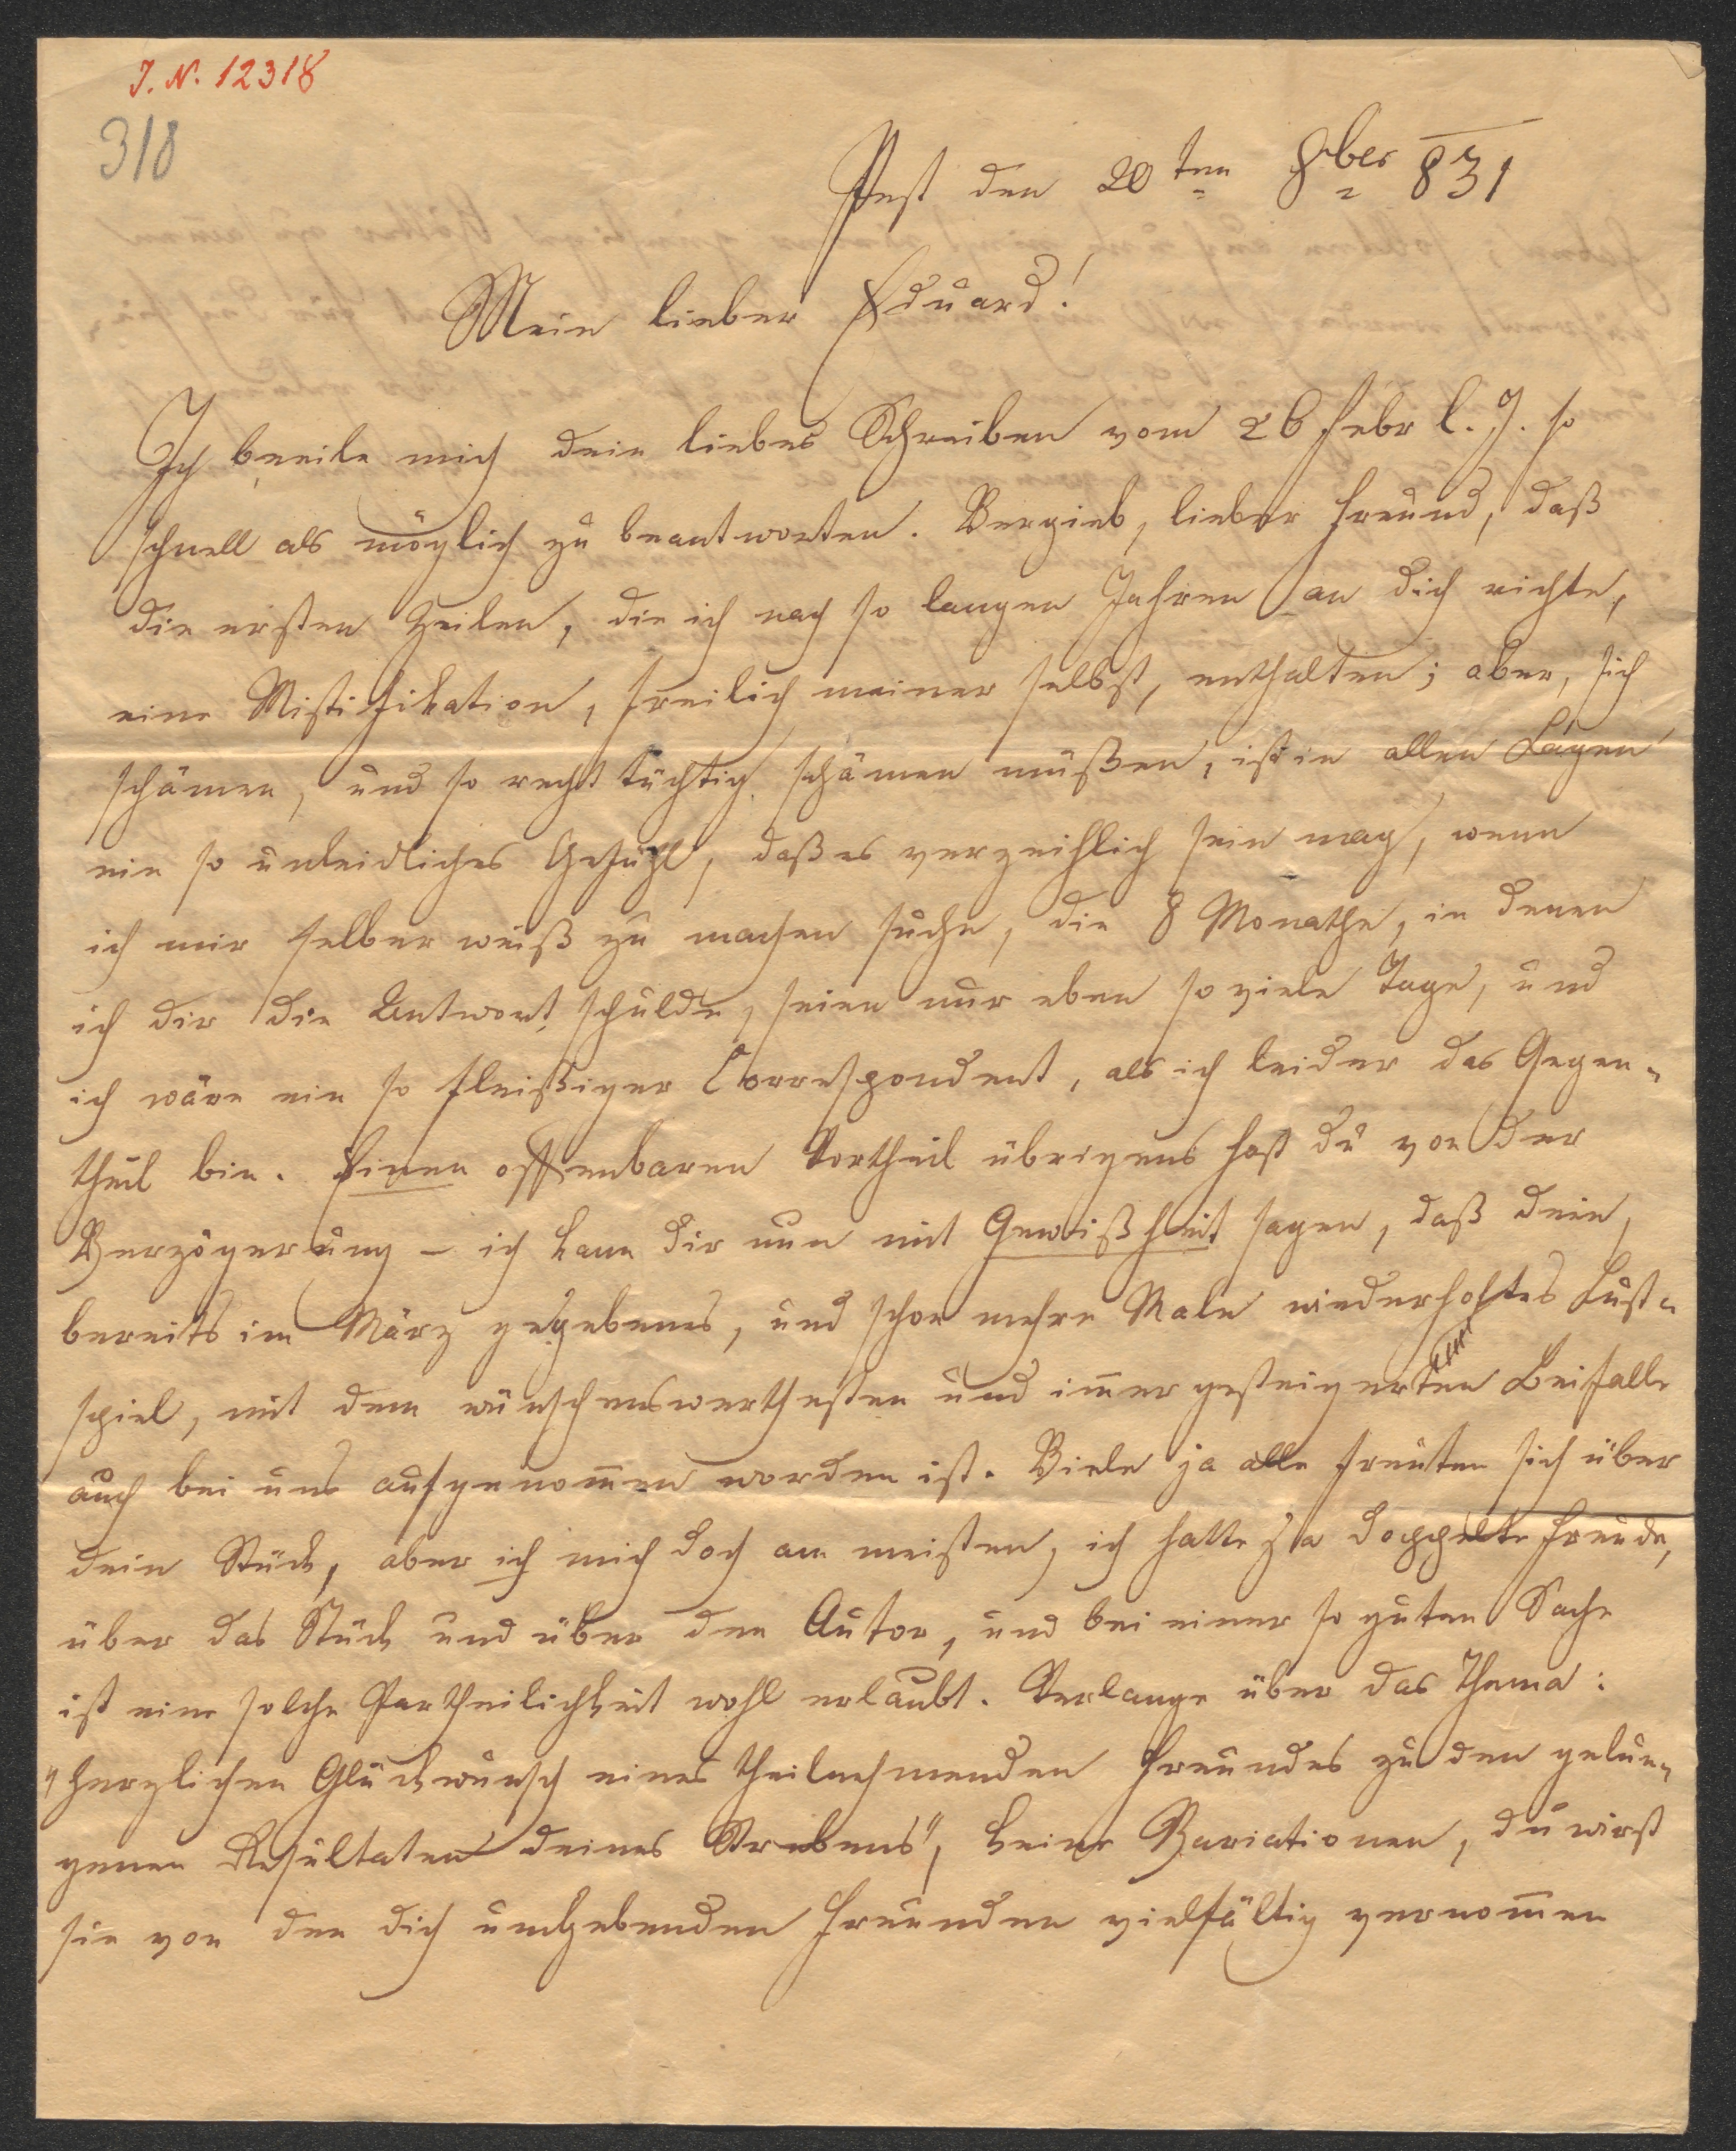 J. N. 12318
318
Pest den 20ten 8ber 831
Mein lieber Eduard!
Ich beeile mich dein liebes Schreiben vom 26 Febr l. J. so
schnell als möglich zu beantworten. Vergieb, lieber Freund, daß
die ersten Zeilen, die ich nach so langen Jahren an dich richte,
eine Mistifikation, freilich meiner selbst, enthalten; aber, sich
schämen, und so recht tüchtig schämen müßen, ist in allen Lagen
ein so unleidliches Gefühl, daß es verzeihlich sein mag, wenn
ich mir selber weiß zu machen suche, die 8 Monathe, in denen
ich dir die Antwort schulde, seien nur eben so viele Tage, und
ich wäre ein so fleißiger Correspondent, als ich leider das Gegen-
theil bin. Einen offenbaren Vortheil übrigens hast du von der
Verzögerung – ich kann dir nun mit Gewißheit sagen, daß dein,
bereits im März gegebenes, und schon mehre Male wiederholtes Lust-
spiel, mit dem wünschenswerthesten und im̄er gesteigerten Beifalle
auch bei uns aufgenom̄en worden ist. Viele ja alle freuten sich über
dein Stück, aber ich mich doch am meisten, ich hatte ja doppelte Freude,
über das Stück und über den Autor, und bei einer so guten Sache
ist eine solche Partheilichkeit wohl erlaubt. Verlange über das Thema:
"herzlichen Glückwunsch eines theilnehmenden Freundes zu den gelun-
genen Resultaten deines Strebens", keine Variationen, du wirst
sie von den dich umgebenden Freunden vielfältig vernom̄en